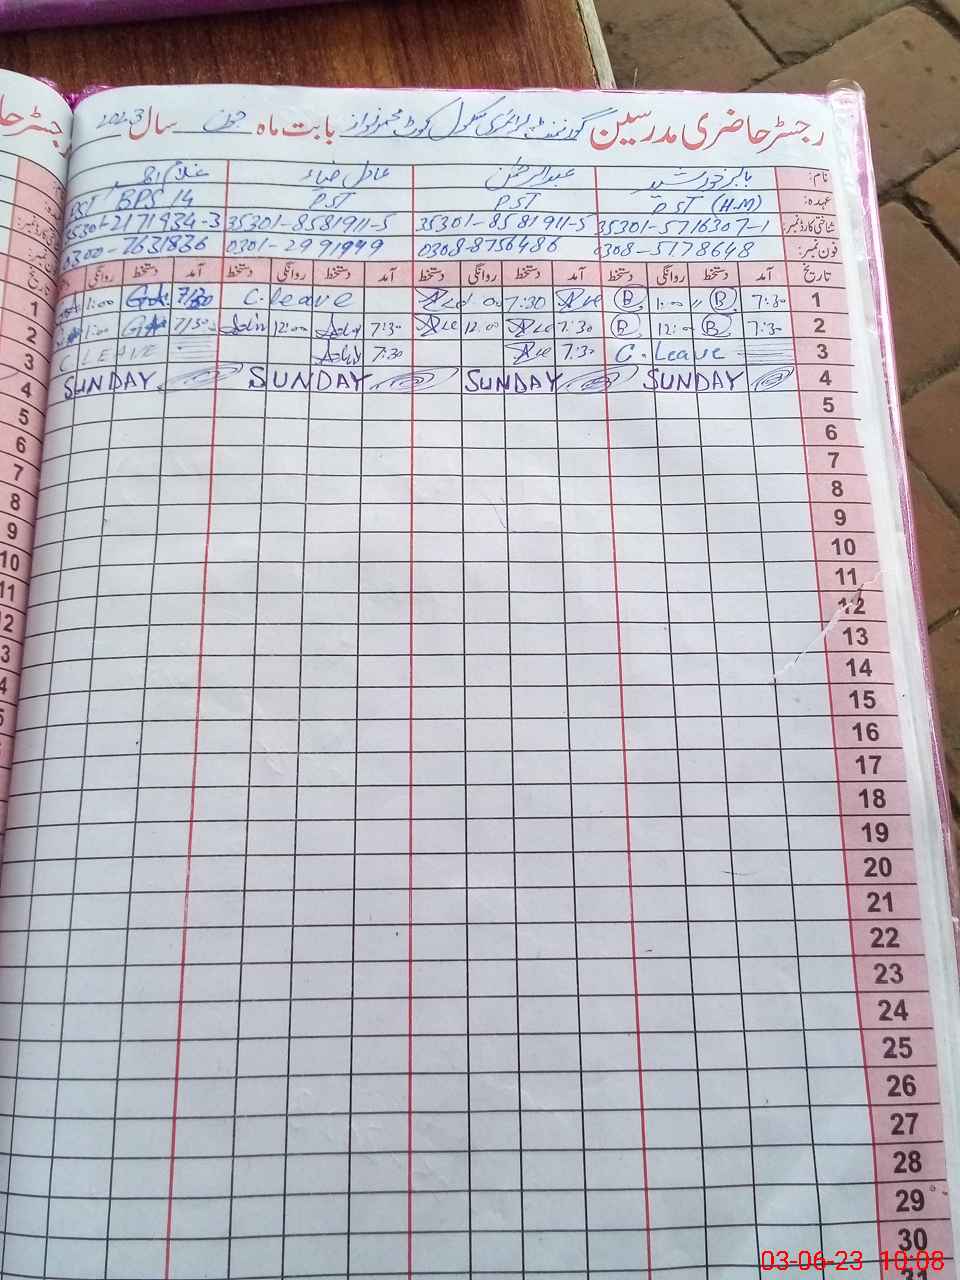 رجسٹر حاضری مدرسین گورنمنٹ پرائمری سکول کوٹ محمد نواز بابت ماہ جون سال 2023
نام: بابر خورشید عبدالرحمٰن عادل ضیاء
عہدہ: PST (H.M) PST PST PST BPS 14
شناختی کارڈ نمبر: 35301-5716307-1 35301-8581911-5 35301-8581911-5 35301-2171934-3
فون نمبر: 0308-5178648 0308-8756486 0301-2991949 0300-7631836
تاریخ آمد دستخط روانگی دستخط آمد دستخط روانگی دستخط آمد دستخط روانگی دستخط آمد دستخط روانگی
1 7:30 B 1:00 B 7:30 C.leave 7:30 1:00
2 7:30 B 12:00 B 7:30 12:00 7:30 12:00 7:30 1:00
3 C. Leave 7:30 7:30 C LEAVE
4 SUNDAY SUNDAY SUNDAY SUNDAY
5
6
7
8
9
10
11
12
13
14
15
16
17
18
19
20
21
22
23
24
25
26
27
28
29
30
31
03-06-23 10:08